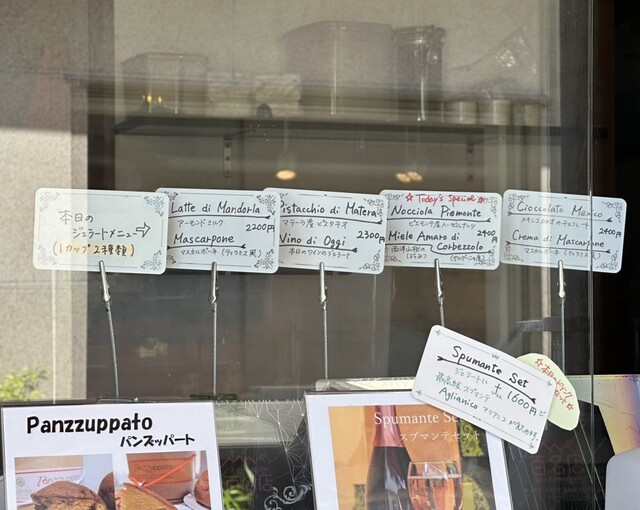 本日の
ジェラートメニュー
(1カップ2種類)
Latte di Mandorla
アーモンドミルク
2200円
Mascarpone
マスカルポーネ (ティラミス風)
Pistacchio di Matera
マテーラ産 ピスタチオ
2300円
Vino di Oggi
本日のワインのジェラート
☆Today's Special☆
Nocciola Piemonte
ピエモンテ産ヘーゼルナッツ
2400円
Miele Amaro di
Corbezzolo
Cioccolato Mexico
メキシコのチョコレート
2400円
Crema di Mascarpone
マスカルポーネ (ティラミス風)
Spumante Set
ジェラートに + 1600円で
Aglianico
Panzzuppato
パンズッパート
Spumante Set
スプマンテセット